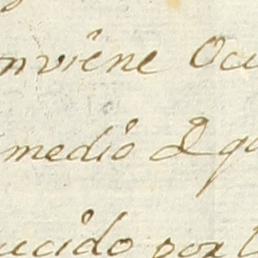 nviene Ocu
medio d qu
ucido por l